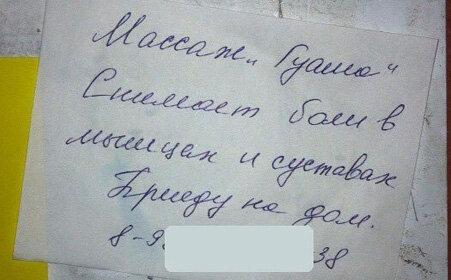 Массаж „Гуаша“
Снимает боли в
мышцах и суставах
Приеду на дом.
8-9 38